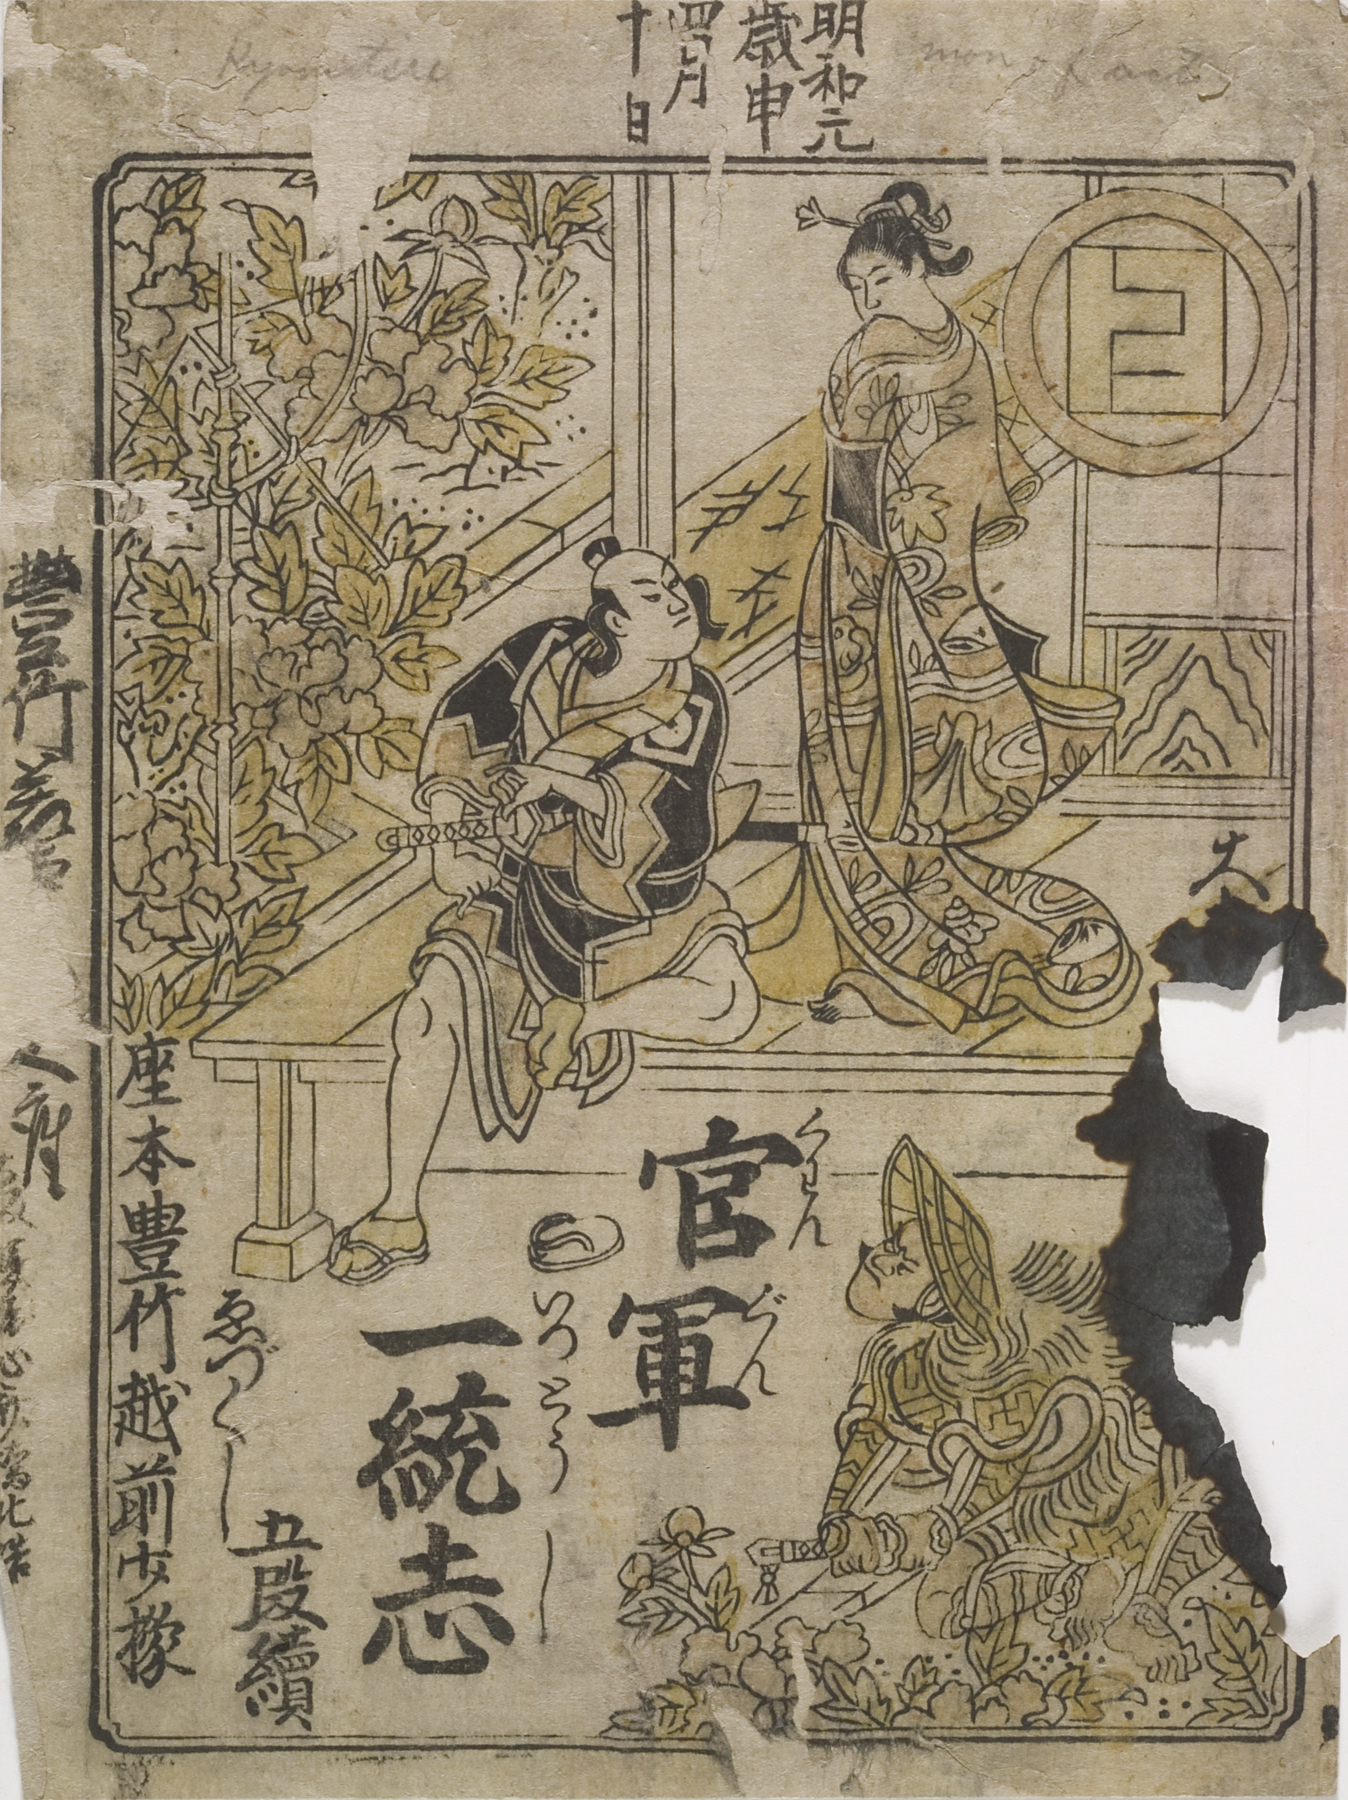 明和元
歳申
四月
十日
Kyomitsu
mon of act
大
官軍
くわんぐん
一統志
いつとうし
ゑづくし
五段續
座本豊竹越前少掾
豊竹若